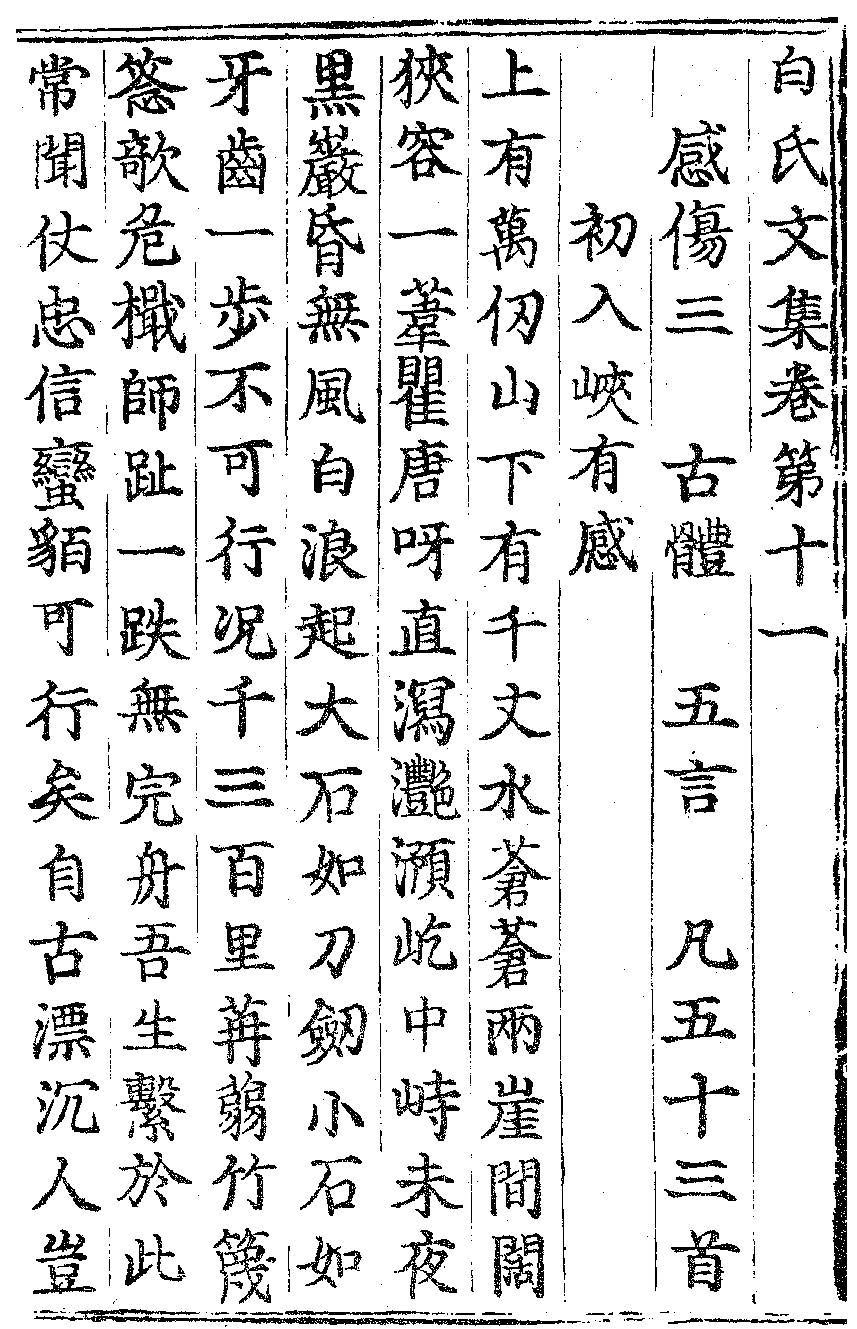 白氏文集卷第十一
感傷三 古體 五言 凡五十三首
初入峽有感
上有萬仞山下有千丈水蒼蒼兩崖間闊
狹容一葦瞿唐呀直瀉灩澦屹中峙未夜
黑巖昏無風白浪起大石如刀劒小石如
牙齒一步不可行况千三百里苒蒻竹篾
䉋欹危檝師趾一跌無完舟吾生繫於此
常聞仗忠信蠻貊可行矣自古漂沉人豈